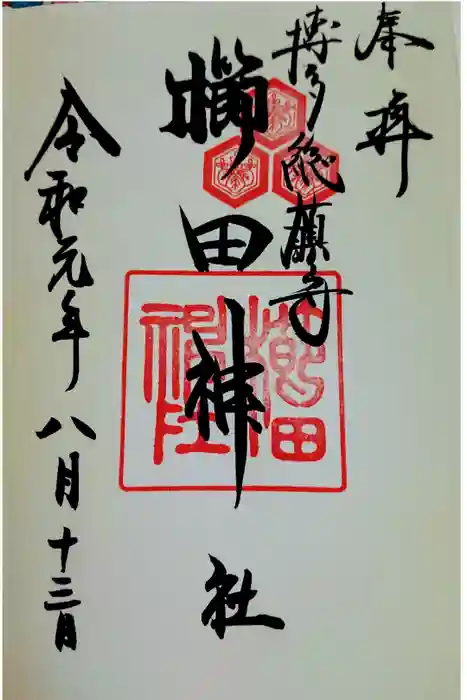 奉拝
博多総鎮守
櫛田神社
櫛田神社
令和元年八月十三日